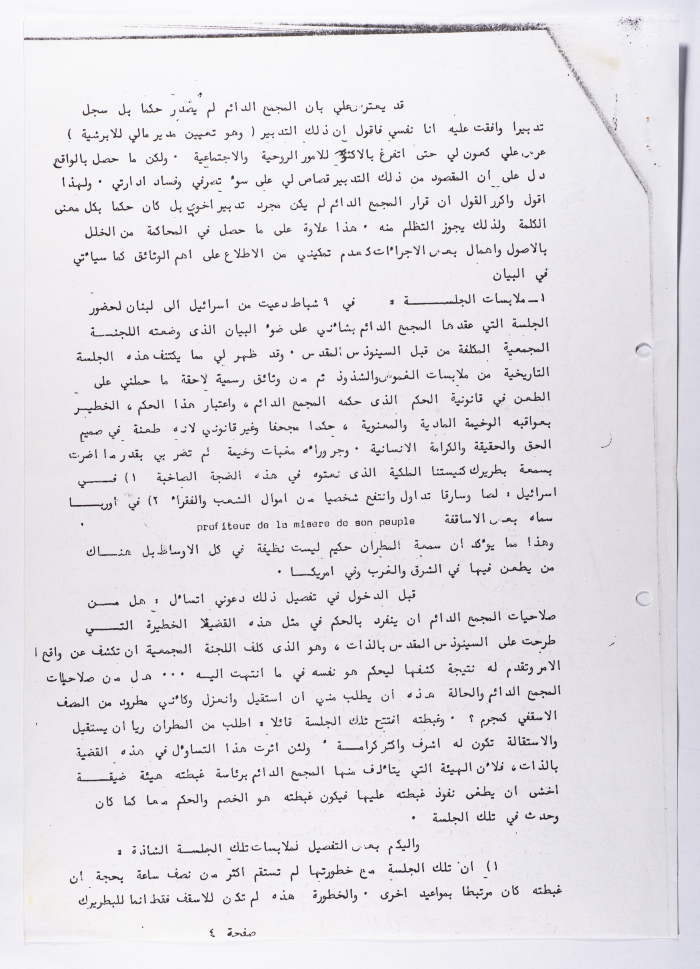 قد يعترض علي بان المجمع الدائم لم يصدر حكما بل سجل
تدبيرا وافقت عليه انا نفسي فاقول ان ذلك التدبير ( وهو تعيين مدير مالي للابرشية )
عرض علي كعون لي حتى اتفرغ بالاكثر للامور الروحية والاجتماعية . ولكن ما حصل بالواقع
دل على ان المقصود من ذلك التدبير قصاص لي على سوء تصرفي وفساد ادارتي . ولهذا
اقول واكرر القول ان قرار المجمع الدائم لم يكن مجرد تدبير اخوي بل كان حكما بكل معنى
الكلمة ولذلك يجوز التظلم منه . هذا علاوة على ما حصل في المحاكمة من الخلل
بالاصول واهمال بعض الاجراءات كعدم تمكيني من الاطلاع على اهم الوثائق كما سيأتي
في البيان
١ـ ملابسات الجلســـة : في ٩ شباط دعيت من اسرائيل الى لبنان لحضور
الجلسة التي عقدها المجمع الدائم بشأني على ضوء البيان الذى وضعته اللجنـة
المجمعية المكلفة من قبل السينوذس المقدس . وقد ظهر لي مما يكتنف هذه الجلسة
التاريخية من ملابسات الغموض والشذوذ ثم من وثائق رسمية لاحقة ما حملني على
الطعن في قانونية الحكم الذى حكمه المجمع الدائم ، واعتبار هذا الحكم ، الخطيـر
بعواقبه الوخيمة المادية والمعنوية ، حكما مجحفا وغير قانوني لانه طعنة في صميم
الحق والحقيقة والكرامة الانسانية . وجر وراءه مغبات وخيمة لم تضر بي بقدر ما اضرت
بسمعة بطريرك كنيستنا الملكية الذى نعتوه في هذه الضجة الصاخبة ١) فـــي
اسرائيل : لصا وسارقا تداول وانتفع شخصيا من اموال الشعب والفقراء ٢) في أوربـــا
سماه بعض الاساقفة profiteur de la misere de son peuple .
وهذا مما يؤكد ان سمعة المطران حكيم ليست نظيفة في كل الاوساط بل هنـــاك
من يطعن فيها في الشرق والغرب وفي امريكـــا .
قبل الدخول في تفصيل ذلك دعوني اتساءل : هل مـــن
صلاحيات المجمع الدائم ان ينفرد بالحكم في مثل هذه القضية الخطيرة التـــي
طرحت على السينوذس المقدس بالذات ، وهو الذى كلف اللجنة المجمعية ان تكشف عن واقع
الامر وتقدم له نتيجة كشفها ليحكم هو نفسه في ما انتهت اليـه ... هل من صلاحيات
المجمع الدائم والحالة هذه أن يطلب مني ان استقيل وانعزل وكأني مطرود من المصف
الاسقفي كمجرم ؟ . وغبطته افتتح تلك الجلسة قائلا : اطلب من المطران ريا ان يستقيل
والاستقالة تكون له اشرف واكثر كرامـــة . ولئن اثرت هذا التساؤل في هذه القضية
بالذات ، فلأن الهيئة التي يتألف منها المجمع الدائم برئاسة غبطته هيئة ضيقـــة
اخشى ان يطغى نفوذ غبطته عليها فيكون غبطته هو الخصم والحكم معا كما كان
وحدث في تلك الجلسة .
واليكم بعض التفصيل لملابسات تلك الجلســة الشاذة :
١) ان تلك الجلسة مع خطورتها لم تستقم اكثر من نصف ساعة بحجة أن
غبطته كان مرتبطا بمواعيد اخرى . والخطورة هذه لم تكن للاسقف فقط انما للبطريرك
صفحة ٤